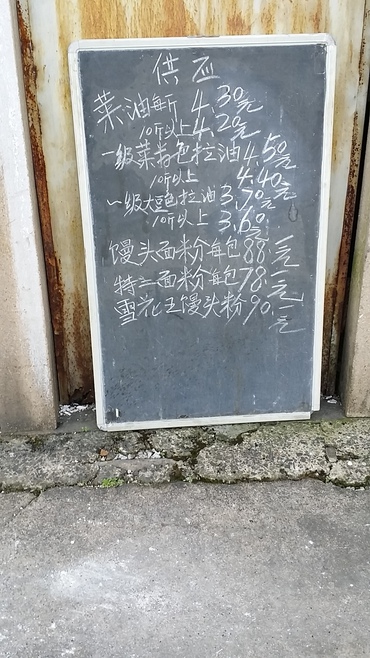 供应
菜油每斤 4.30元
10斤以上 4.20元
一级菜籽色拉油 4.50元
10斤以上 4.40元
一级大豆色拉油 3.70元
10斤以上 3.60元
馒头面粉每包 88.元
特二面粉每包 78.元
雪花王馒头粉 90.元